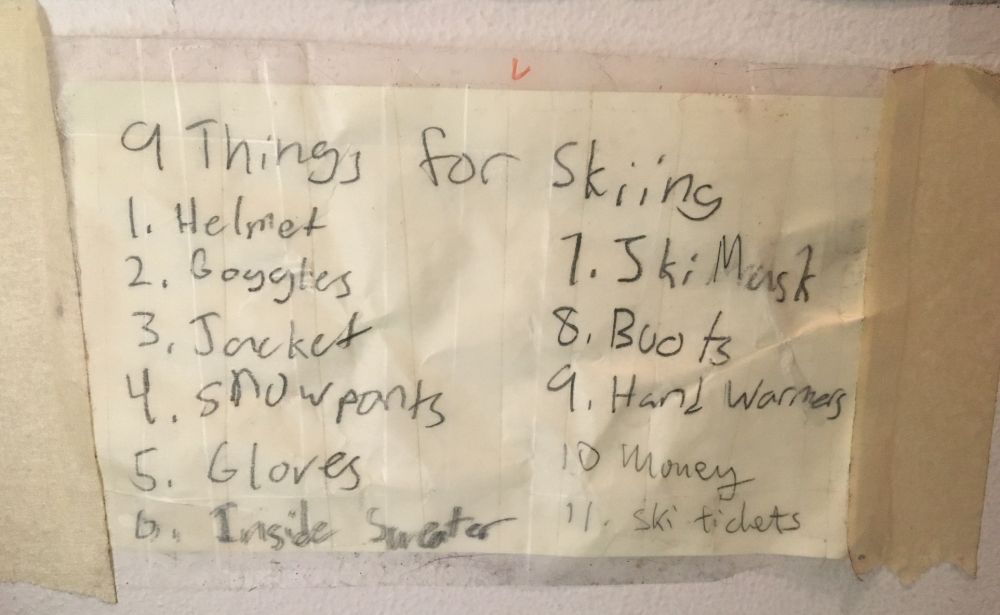 9 Things for Skiing
1. Helmet
2. Goggles
3. Jacket
4. Snowpants
5. Gloves
6. Inside Sweater
7. Ski Mask
8. Boots
9. Hand Warmers
10 Money
11. Ski tickets